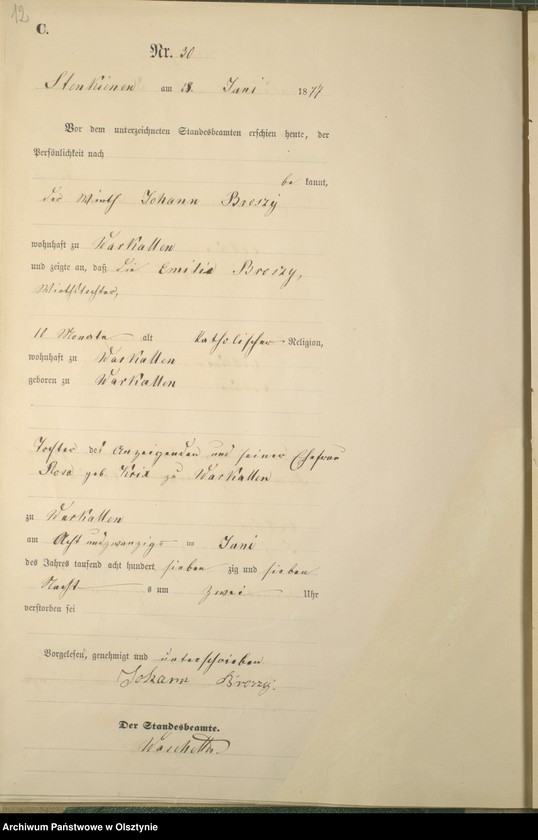 12
C.
Nr. 30
Stenkienen am 28. Juni 1877
Vor dem unterzeichneten Standesbeamten erschien heute, der
Persönlichkeit nach
be kannt,
der Wirth Johann Breszy
wohnhaft zu Warkallen
und zeigte an, daß die Emilie Breszy,
Wirthstochter,
10 Monate alt katholischer Religion,
wohnhaft zu Warkallen
geboren zu Warkallen
Tochter des Anzeigenden und seiner Ehefrau
Rosa geb. zu Warkallen
zu Warkallen
am Acht und zwanzigs ten Juni
des Jahres tausend acht hundert sieben zig und sieben
Nachts um zwei Uhr
verstorben sei
Vorgelesen, genehmigt und unterschrieben
Johann Breszy.
Der Standesbeamte.
Archiwum Państwowe w Olsztynie